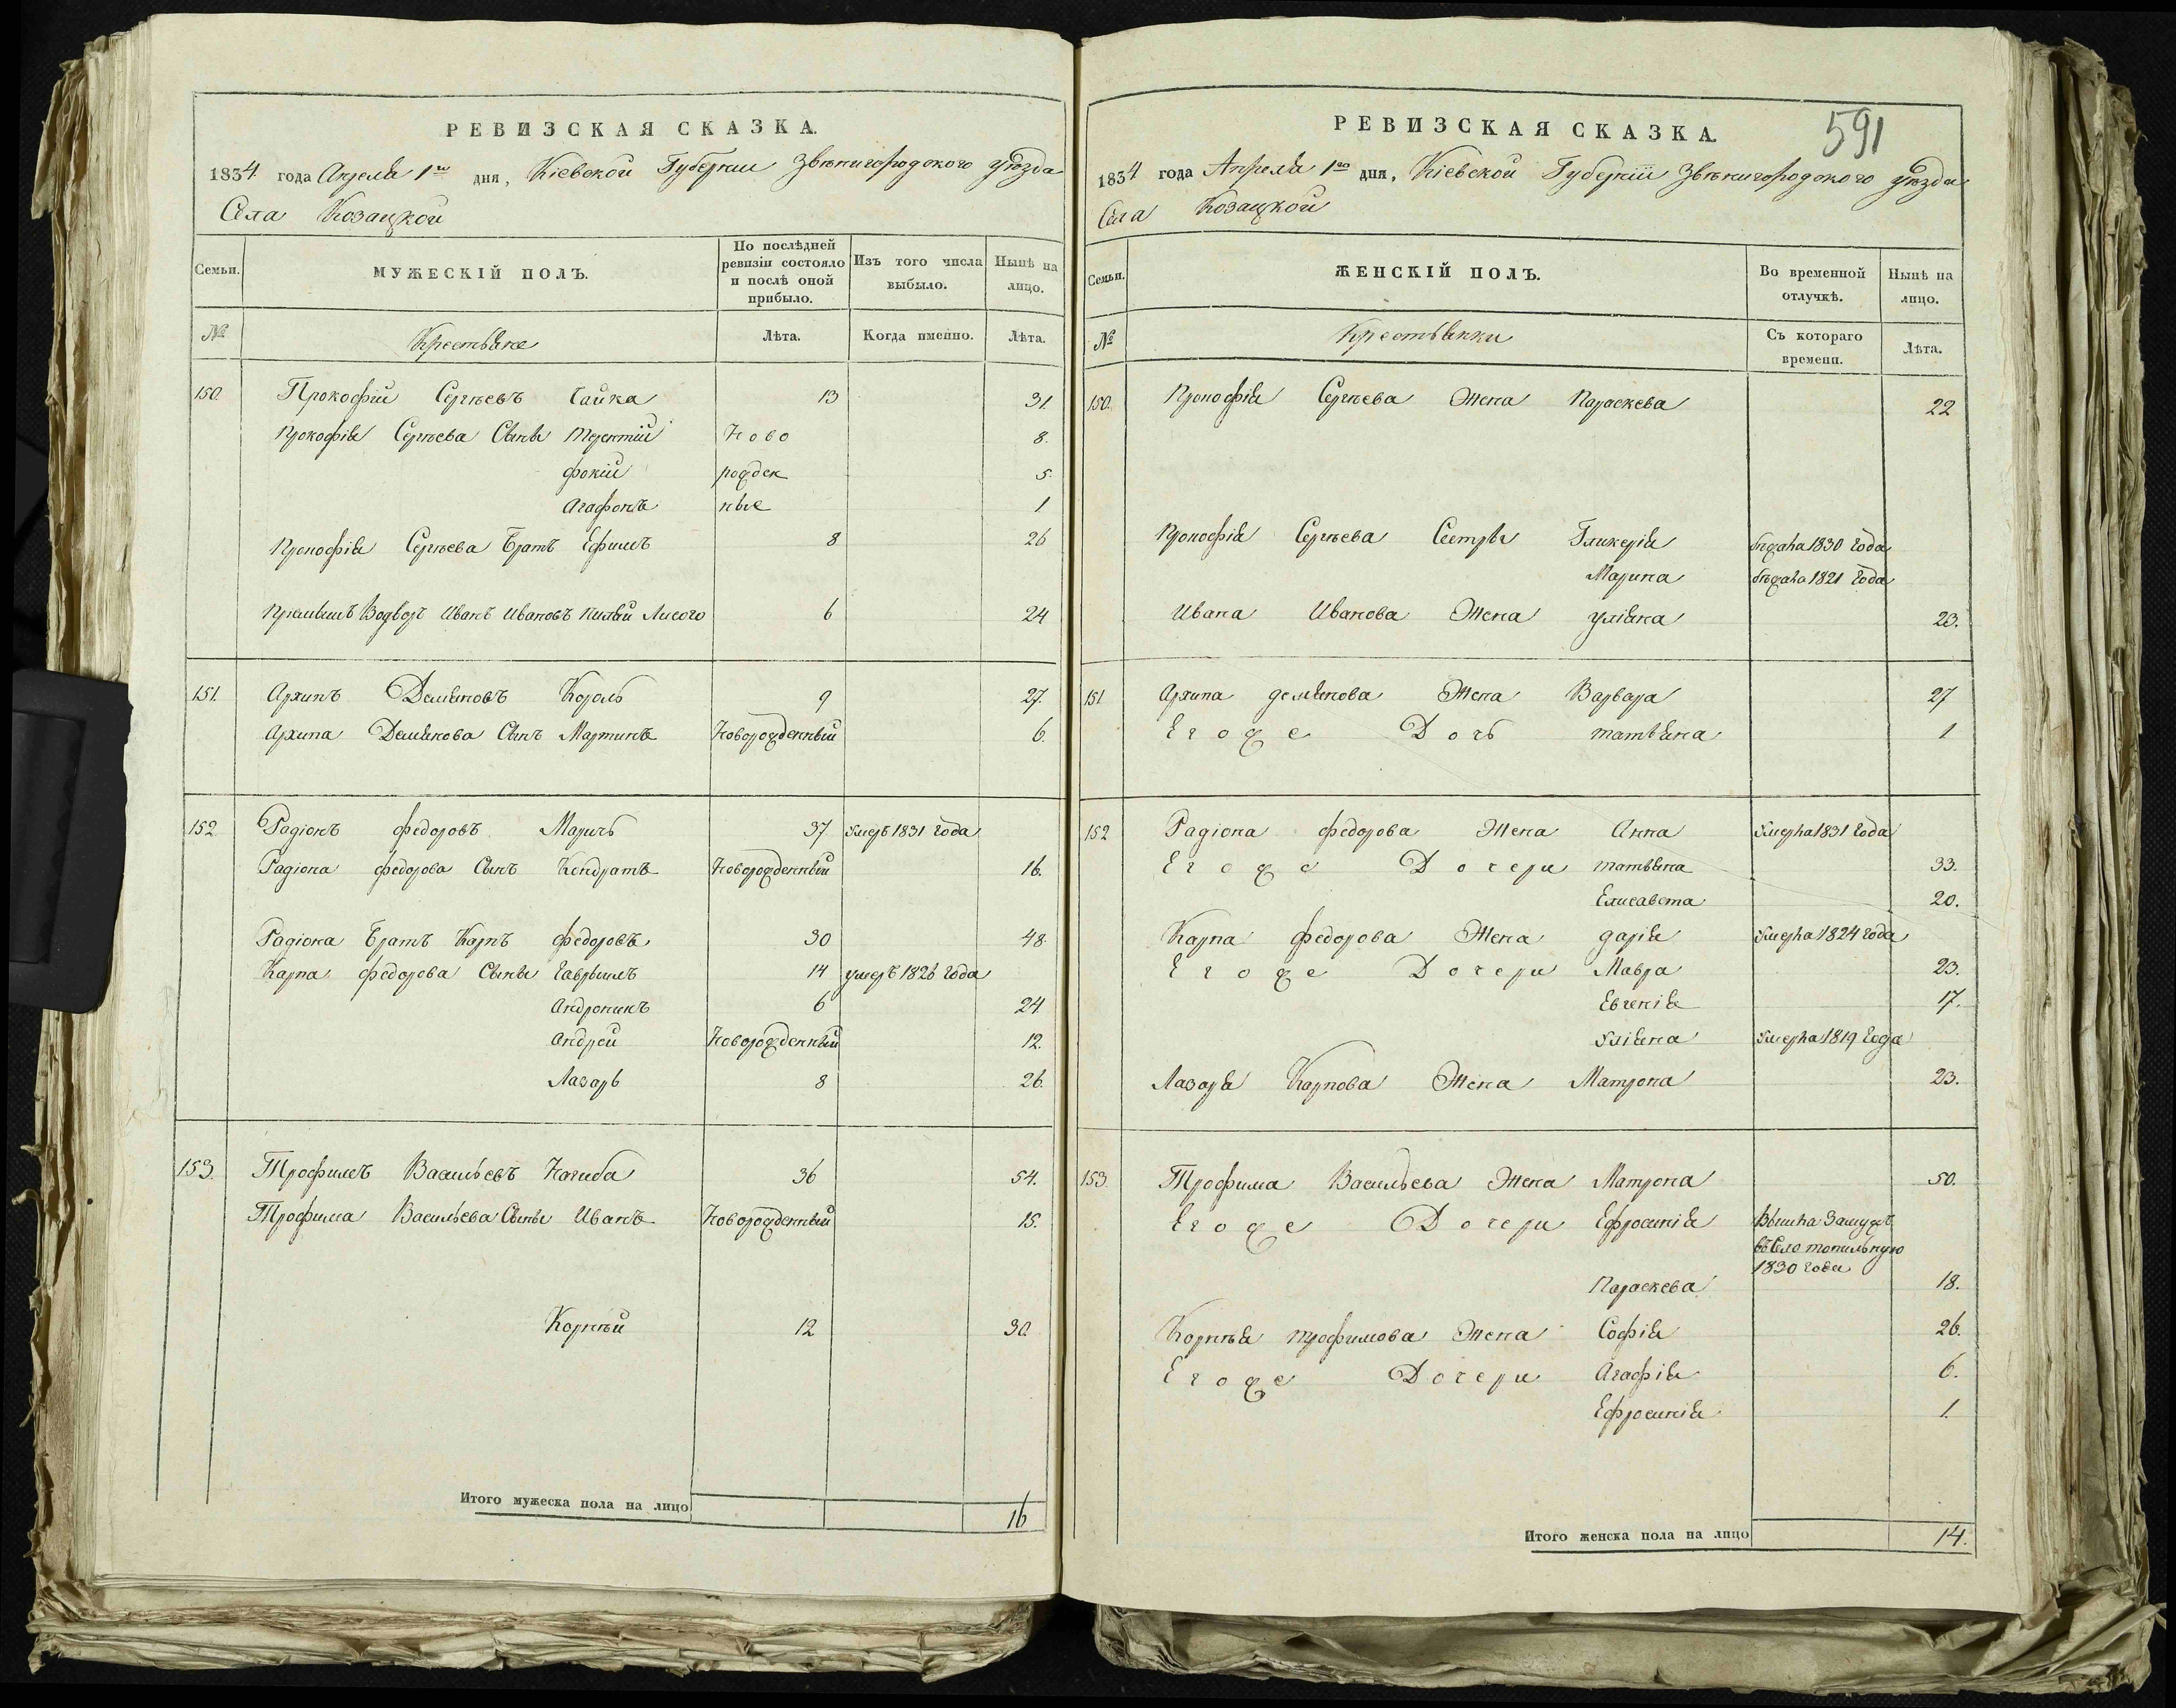 РЕВИЗСКАЯ СКАЗКА.
1834 года Апреля 1го дня, Кіевской Губернии Звѣнигородского уѣзда
Села Козацкой
Семьи. МУЖЕСКІЙ ПОЛЪ. По послѣдней ревизіи состояло и послѣ оной прибыло. Изъ того числа выбыло. Нынѣ на лицо.
№ Крестьяне Лѣта. Когда именно. Лѣта.
150. Прокофій Сергѣевъ Сайка 13 31.
Прокофія Сергѣева Сыны Терентій Ново 8.
Фокій рожден 5.
Агафонъ ные 1
Прокофія Сергѣева Братъ Ефимъ 8 26
Иванъ Ивановъ 6 24
151. Архипъ Демяновъ Король 9 27.
Архипа Демянова Сынъ Мартинъ Новорожденный 6.
152 Радіонъ Федоровъ Маричъ 37 умеръ 1831 года
Радіона Федорова Сынъ Кондратъ Новорожденный 16.
Радіона Братъ Карпъ Федоровъ 30 48.
Карпа Федорова Сыны Гаврыилъ 14 умеръ 1826 года
Андроникъ 6 24.
Андрей Новорожденный 12.
Лазарь 8 26.
153. Трофимъ Васильевъ Нагиба 36 54.
Трофима Васильева Сыны Иванъ Новорожденный 15.
Корнѣй 12 30
Итого мужеска пола на лицо 16
591
РЕВИЗСКАЯ СКАЗКА.
1834 года Апреля 1го дня, Кіевской Губерніи Звѣнигородского уѣзда
Села Козацкой
Семьи. ЖЕНСКІЙ ПОЛЪ. Во временной отлучкѣ. Нынѣ на лицо.
№ Крестьянки Съ котораго времени. Лѣта.
150. Прокофія Сергѣева Жена Параскева 22
Прокофія Сергѣева Сестры Гликерія бѣжала 1830 года
Марина бѣжала 1821 года
Ивана Иванова Жена Уліяна 23.
151 Архипа Демянова Жена Варвара 27
Егоже Дочь татьяна 1
152 Радіона Федорова Жена Анна умерла 1831 года
Егоже Дочери татьяна 33.
Елисавета 20.
Карпа Федорова Жена Дарія умерла 1824 года
Егоже Дочери Мавра 23.
Евгенія 17.
Уліяна умерла 1819 года
Лазаря Карпова Жена Матрона 23.
153 Трофима Васильева Жена Матрона 50.
Егоже Дочери Ефросинія Вышла Замужъ
въ Село топильную
1830 года
Параскева 18.
Корнѣя трофимова Жена Софія 26.
Егоже Дочери Агафія 6.
Ефросинія 1.
Итого женска пола на лицо 14.